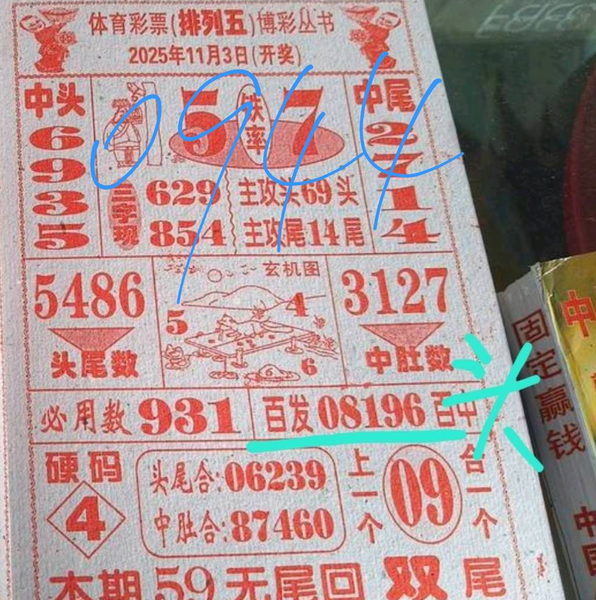 体育彩票(排列五)博彩丛书
2025年11月3日(开奖)
中头
6
9
3
5
5 铁率 7
中尾
2
7
1
4
三字现
629
854
主攻头69头
主攻尾14尾
0944
5486
头尾数
玄机图
5
4
6
3127
中肚数
必用数931
百发08196百中
头
硬码
4
头尾合:06239
中肚合:87460
上一个
09
合一个
本期59无尾回双尾
固定赢钱
中
中国